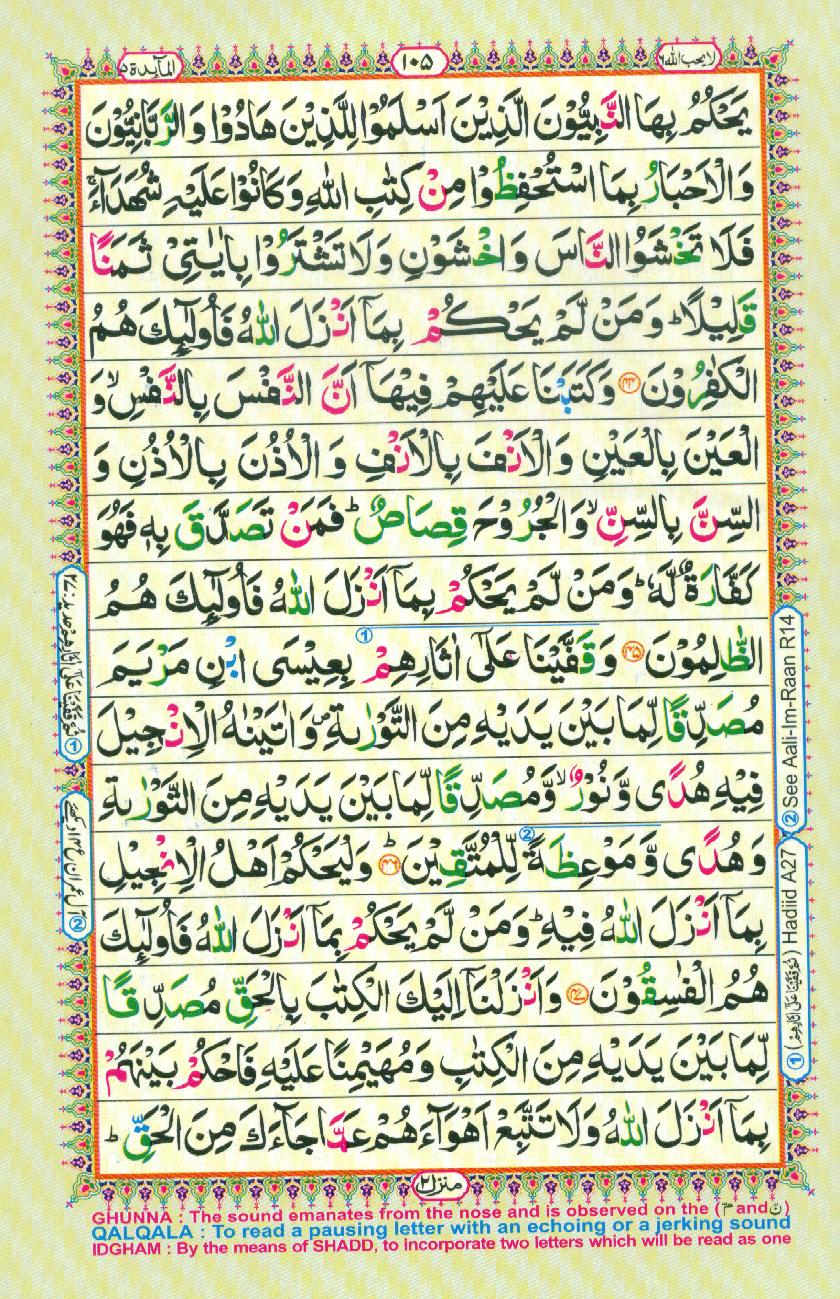 لا يحب الله ٦
١٠٥
المآئدة ٥
يَحْكُمُ بِهَا النَّبِيُّوْنَ الَّذِيْنَ اَسْلَمُوْا لِلَّذِيْنَ هَادُوْا وَالرَّبّٰنِيُّوْنَ
وَالْاَحْبَارُ بِمَا اسْتُحْفِظُوْا مِنْ كِتٰبِ اللّٰهِ وَكَانُوْا عَلَيْهِ شُهَدَآءَ ۚ
فَلَا تَخْشَوُا النَّاسَ وَاخْشَوْنِ وَلَا تَشْتَرُوْا بِاٰيٰتِيْ ثَمَنًا
قَلِيْلًا ؕ وَمَنْ لَّمْ يَحْكُمْ بِمَاۤ اَنْزَلَ اللّٰهُ فَاُولٰٓئِكَ هُمُ
الْكٰفِرُوْنَ ﴿۴۴﴾ وَكَتَبْنَا عَلَيْهِمْ فِيْهَاۤ اَنَّ النَّفْسَ بِالنَّفْسِ ۙ وَ
الْعَيْنَ بِالْعَيْنِ وَالْاَنْفَ بِالْاَنْفِ وَالْاُذُنَ بِالْاُذُنِ وَ
السِّنَّ بِالسِّنِّ ۙ وَالْجُرُوْحَ قِصَاصٌ ؕ فَمَنْ تَصَدَّقَ بِهٖ فَهُوَ
كَفَّارَةٌ لَّهٗ ؕ وَمَنْ لَّمْ يَحْكُمْ بِمَاۤ اَنْزَلَ اللّٰهُ فَاُولٰٓئِكَ هُمُ
الظّٰلِمُوْنَ ﴿۴۵﴾ وَقَفَّيْنَا عَلٰۤى اٰثَارِهِمْ ① بِعِيْسَى ابْنِ مَرْيَمَ
مُصَدِّقًا لِّمَا بَيْنَ يَدَيْهِ مِنَ التَّوْرٰىةِ ۪ وَاٰتَيْنٰهُ الْاِنْجِيْلَ
فِيْهِ هُدًى وَّنُوْرٌ ۙ وَّمُصَدِّقًا لِّمَا بَيْنَ يَدَيْهِ مِنَ التَّوْرٰىةِ
وَهُدًى وَّمَوْعِظَةً ② لِّلْمُتَّقِيْنَ ؕ ﴿۴۶﴾ وَلْيَحْكُمْ اَهْلُ الْاِنْجِيْلِ
بِمَاۤ اَنْزَلَ اللّٰهُ فِيْهِ ؕ وَمَنْ لَّمْ يَحْكُمْ بِمَاۤ اَنْزَلَ اللّٰهُ فَاُولٰٓئِكَ
هُمُ الْفٰسِقُوْنَ ﴿۴۷﴾ وَاَنْزَلْنَاۤ اِلَيْكَ الْكِتٰبَ بِالْحَقِّ مُصَدِّقًا
لِّمَا بَيْنَ يَدَيْهِ مِنَ الْكِتٰبِ وَمُهَيْمِنًا عَلَيْهِ فَاحْكُمْ بَيْنَهُمْ
بِمَاۤ اَنْزَلَ اللّٰهُ وَلَا تَتَّبِعْ اَهْوَآءَهُمْ عَمَّا جَآءَكَ مِنَ الْحَقِّ ؕ
② See Aali-Im-Raan R14
① (ثُمَّ قَفَّيْنَا عَلٰٓى اٰثَارِهِمْ) Hadiid A27
منزل ٢
GHUNNA : The sound emanates from the nose and is observed on the (م and ن)
QALQALA : To read a pausing letter with an echoing or a jerking sound
IDGHAM : By the means of SHADD, to incorporate two letters which will be read as one